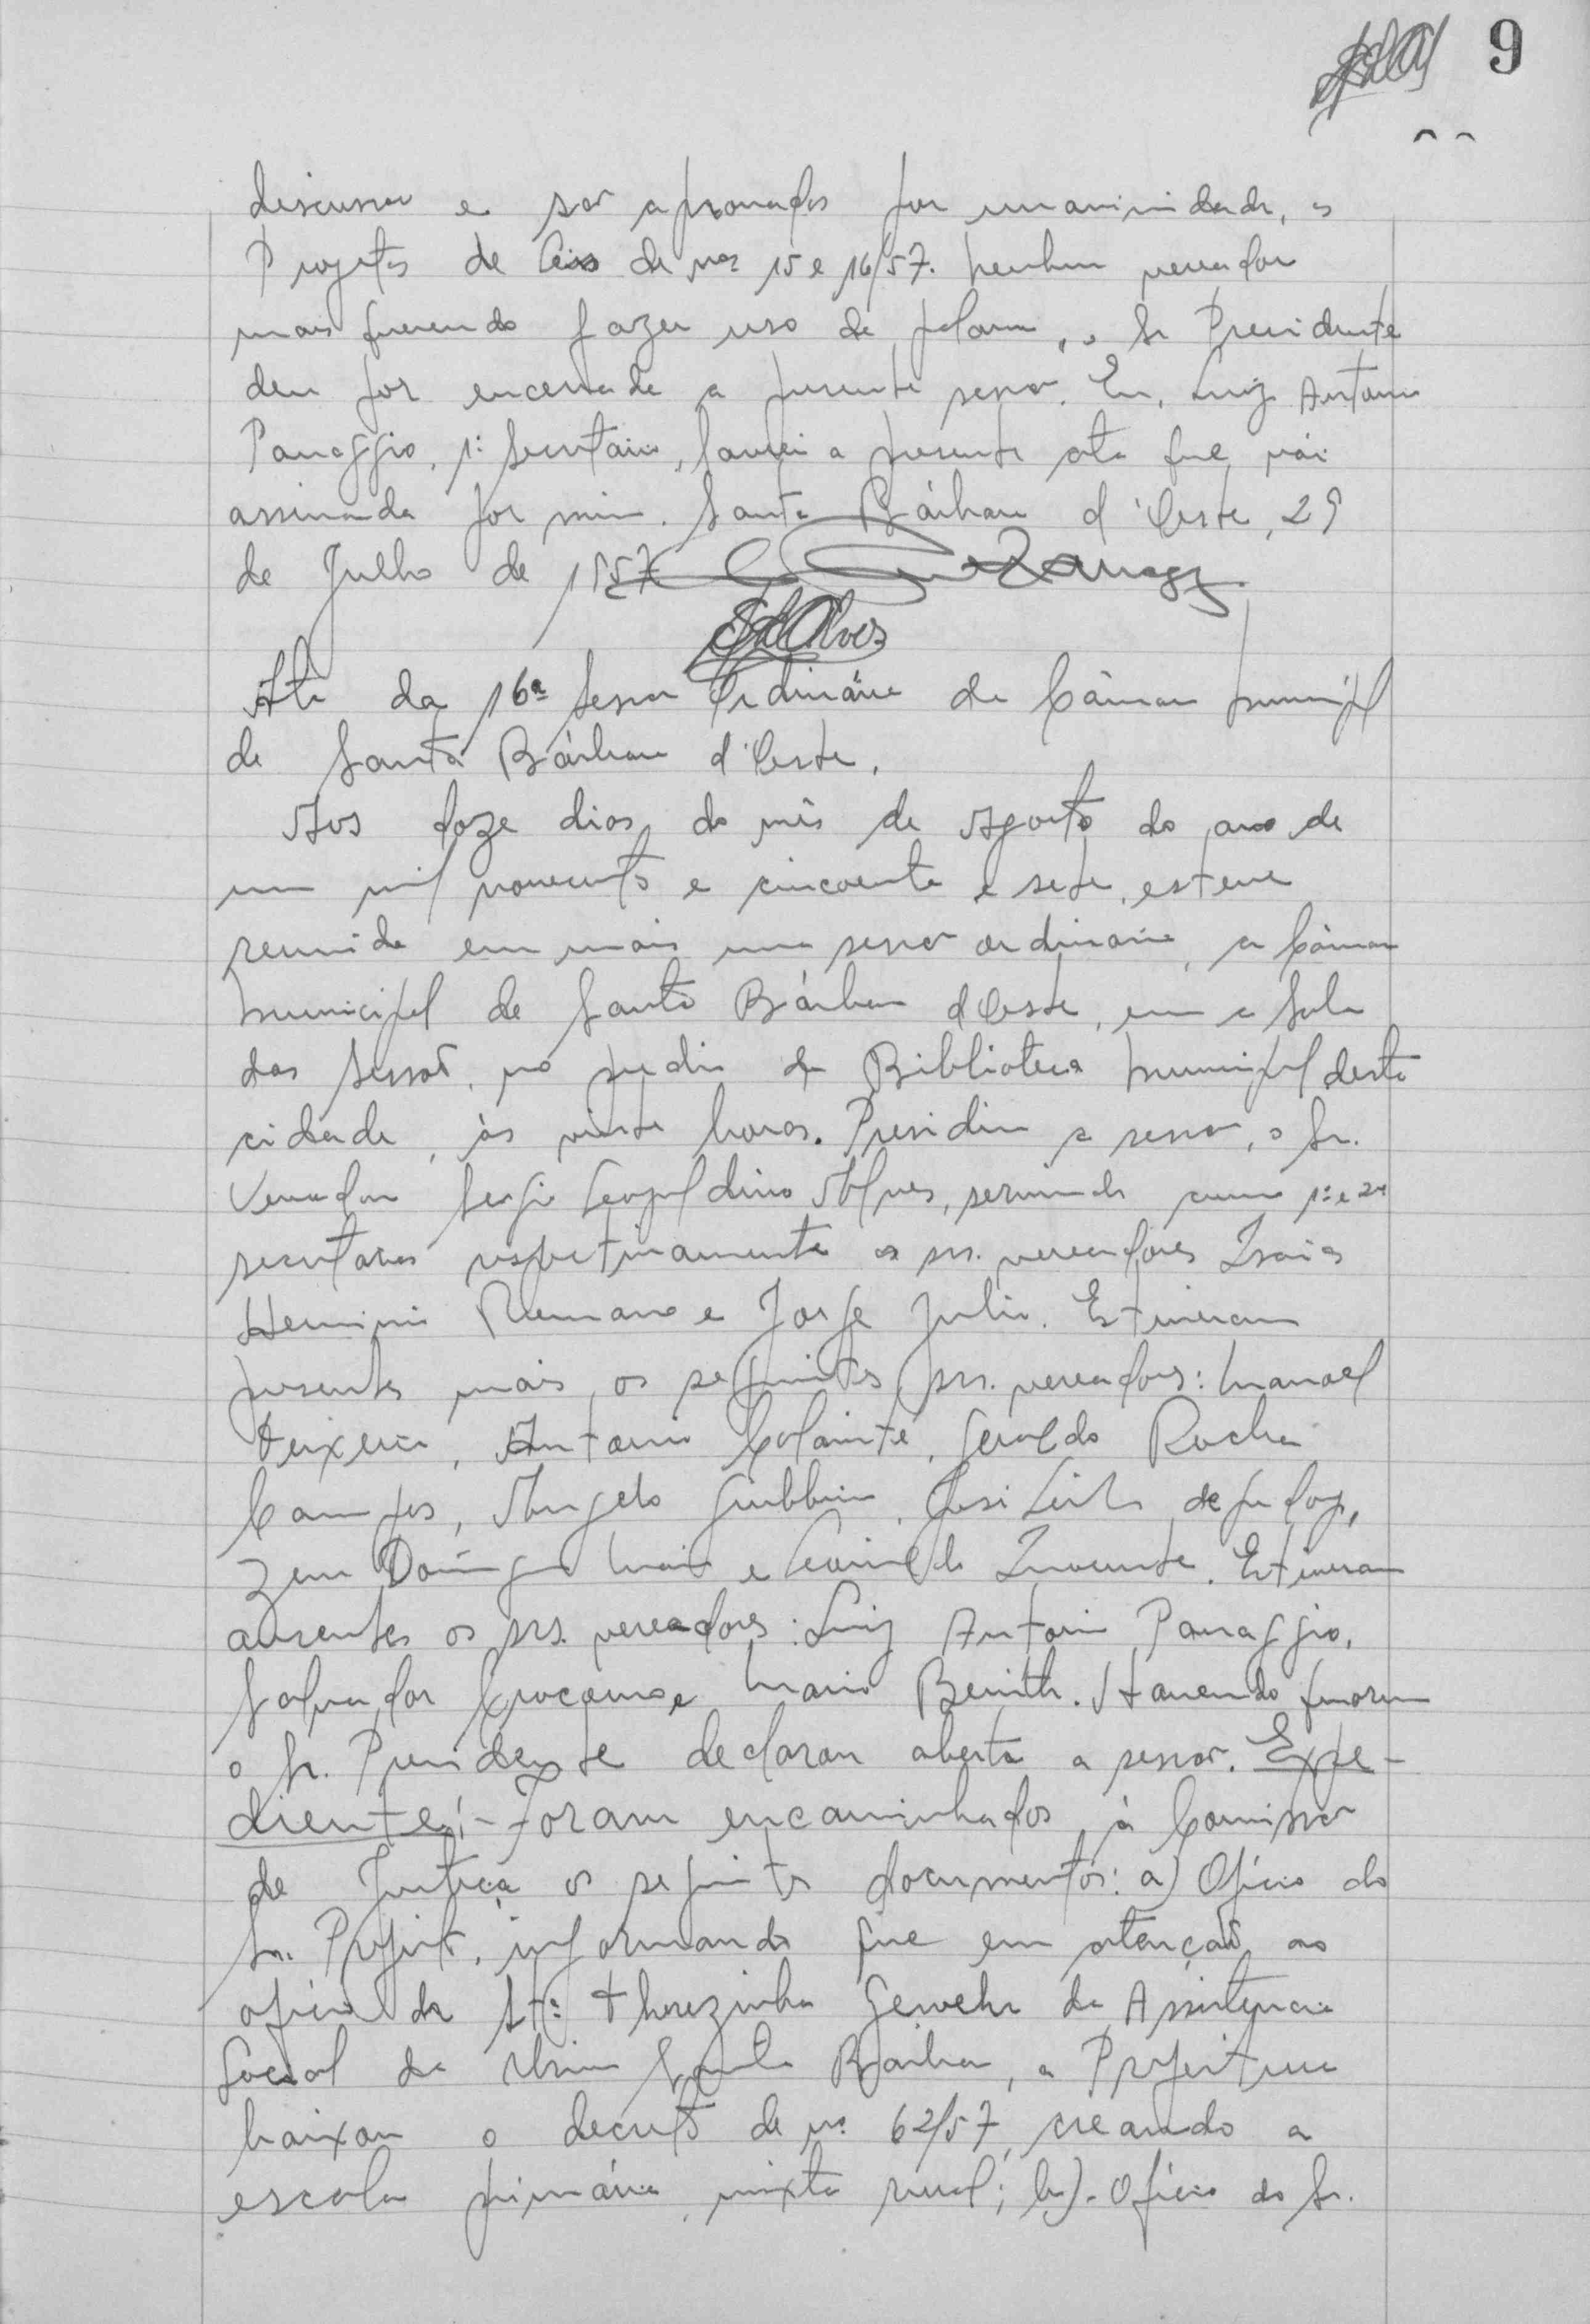 9
discussão e são aprovados por unanimidade, os
Projetos de Leis de nos 15 e 16/57. Nenhum vereador
mais querendo fazer uso da palavra, o Sr Presidente
deu por encerrada a presente sessão. Eu, Luiz Antonio
Panaggio, 1º Secretário, lavrei a presente ata que vai
assinada por mim. Santa Bárbara d'Oeste, 29
de Julho de 1957
SLAlves
Ata da 16ª Sessão Ordinária da Câmara Municipal
de Santa Bárbara d'Oeste.
Aos doze dias do mês de Agosto do ano de
um mil novecentos e cincoenta e sete, esteve
reunida em mais uma sessão ordinaria, a Câmara
Municipal de Santa Bárbara d'Oeste, em a Sala
das Sessões, no predio da Biblioteca Municipal desta
cidade, às vinte horas. Presidiu a sessão, o Sr.
Vereador Sergio Leopoldino Alves, servindo como 1º e 2º
secretarios respetivamente os srs. vereadores Isaias
Herminio Romano e Jorge Julio. Estiveram
presentes mais os seguintes srs. vereadores: Manoel
Teixeira, Antonio, Geraldo Rocha
Campos, Angelo Giubbina, José Leite de Godoy,
Domingos Maia e Inocente. Estiveram
ausentes os srs. vereadores: Luiz Antonio Panaggio,
Salvador e Mario. Havendo quorum
o Sr. Presidente declarou aberta a sessão. Expe-
diente:- Foram encaminhados à Comissão
de Justiça os seguintes documentos: a) Ofício do
Sr. Prefeito, informando que em atenção ao
oficio da Sta. Therezinha Gewehr da Assistencia
Social da Usina Santa Bárbara, a Prefeitura
baixou o decreto de nº 62/57, creando a
escola primária mixta rural; b)- Ofício do Sr.